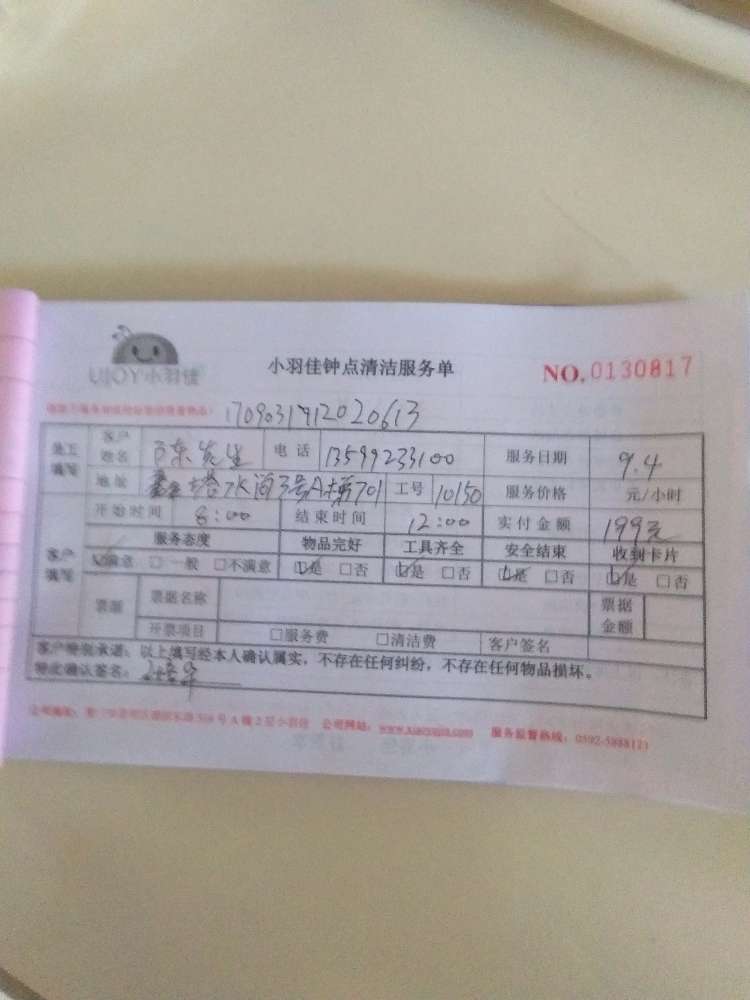 UJOY小羽佳
小羽佳钟点清洁服务单
NO.0130817
1709031912020613
员工填写 客户姓名 先生 电话 13599233100 服务日期 9.4
地址 水湾3号A梯701 工号 10150 服务价格 元/小时
客户填写 开始时间 8:00 结束时间 12:00 实付金额 199元
服务态度 物品完好 工具齐全 安全结束 收到卡片
☑满意 □一般 □不满意 ☑是 □否 ☑是 □否 ☑是 □否 ☑是 □否
票据 票据名称 票据金额
开票项目 □服务费 □清洁费 客户签名
客户特别承诺:以上填写经本人确认属实,不存在任何纠纷,不存在任何物品损坏。
特此确认签名:
公司地址: 号A幢2层小羽佳 公司网站: 服务监督热线: